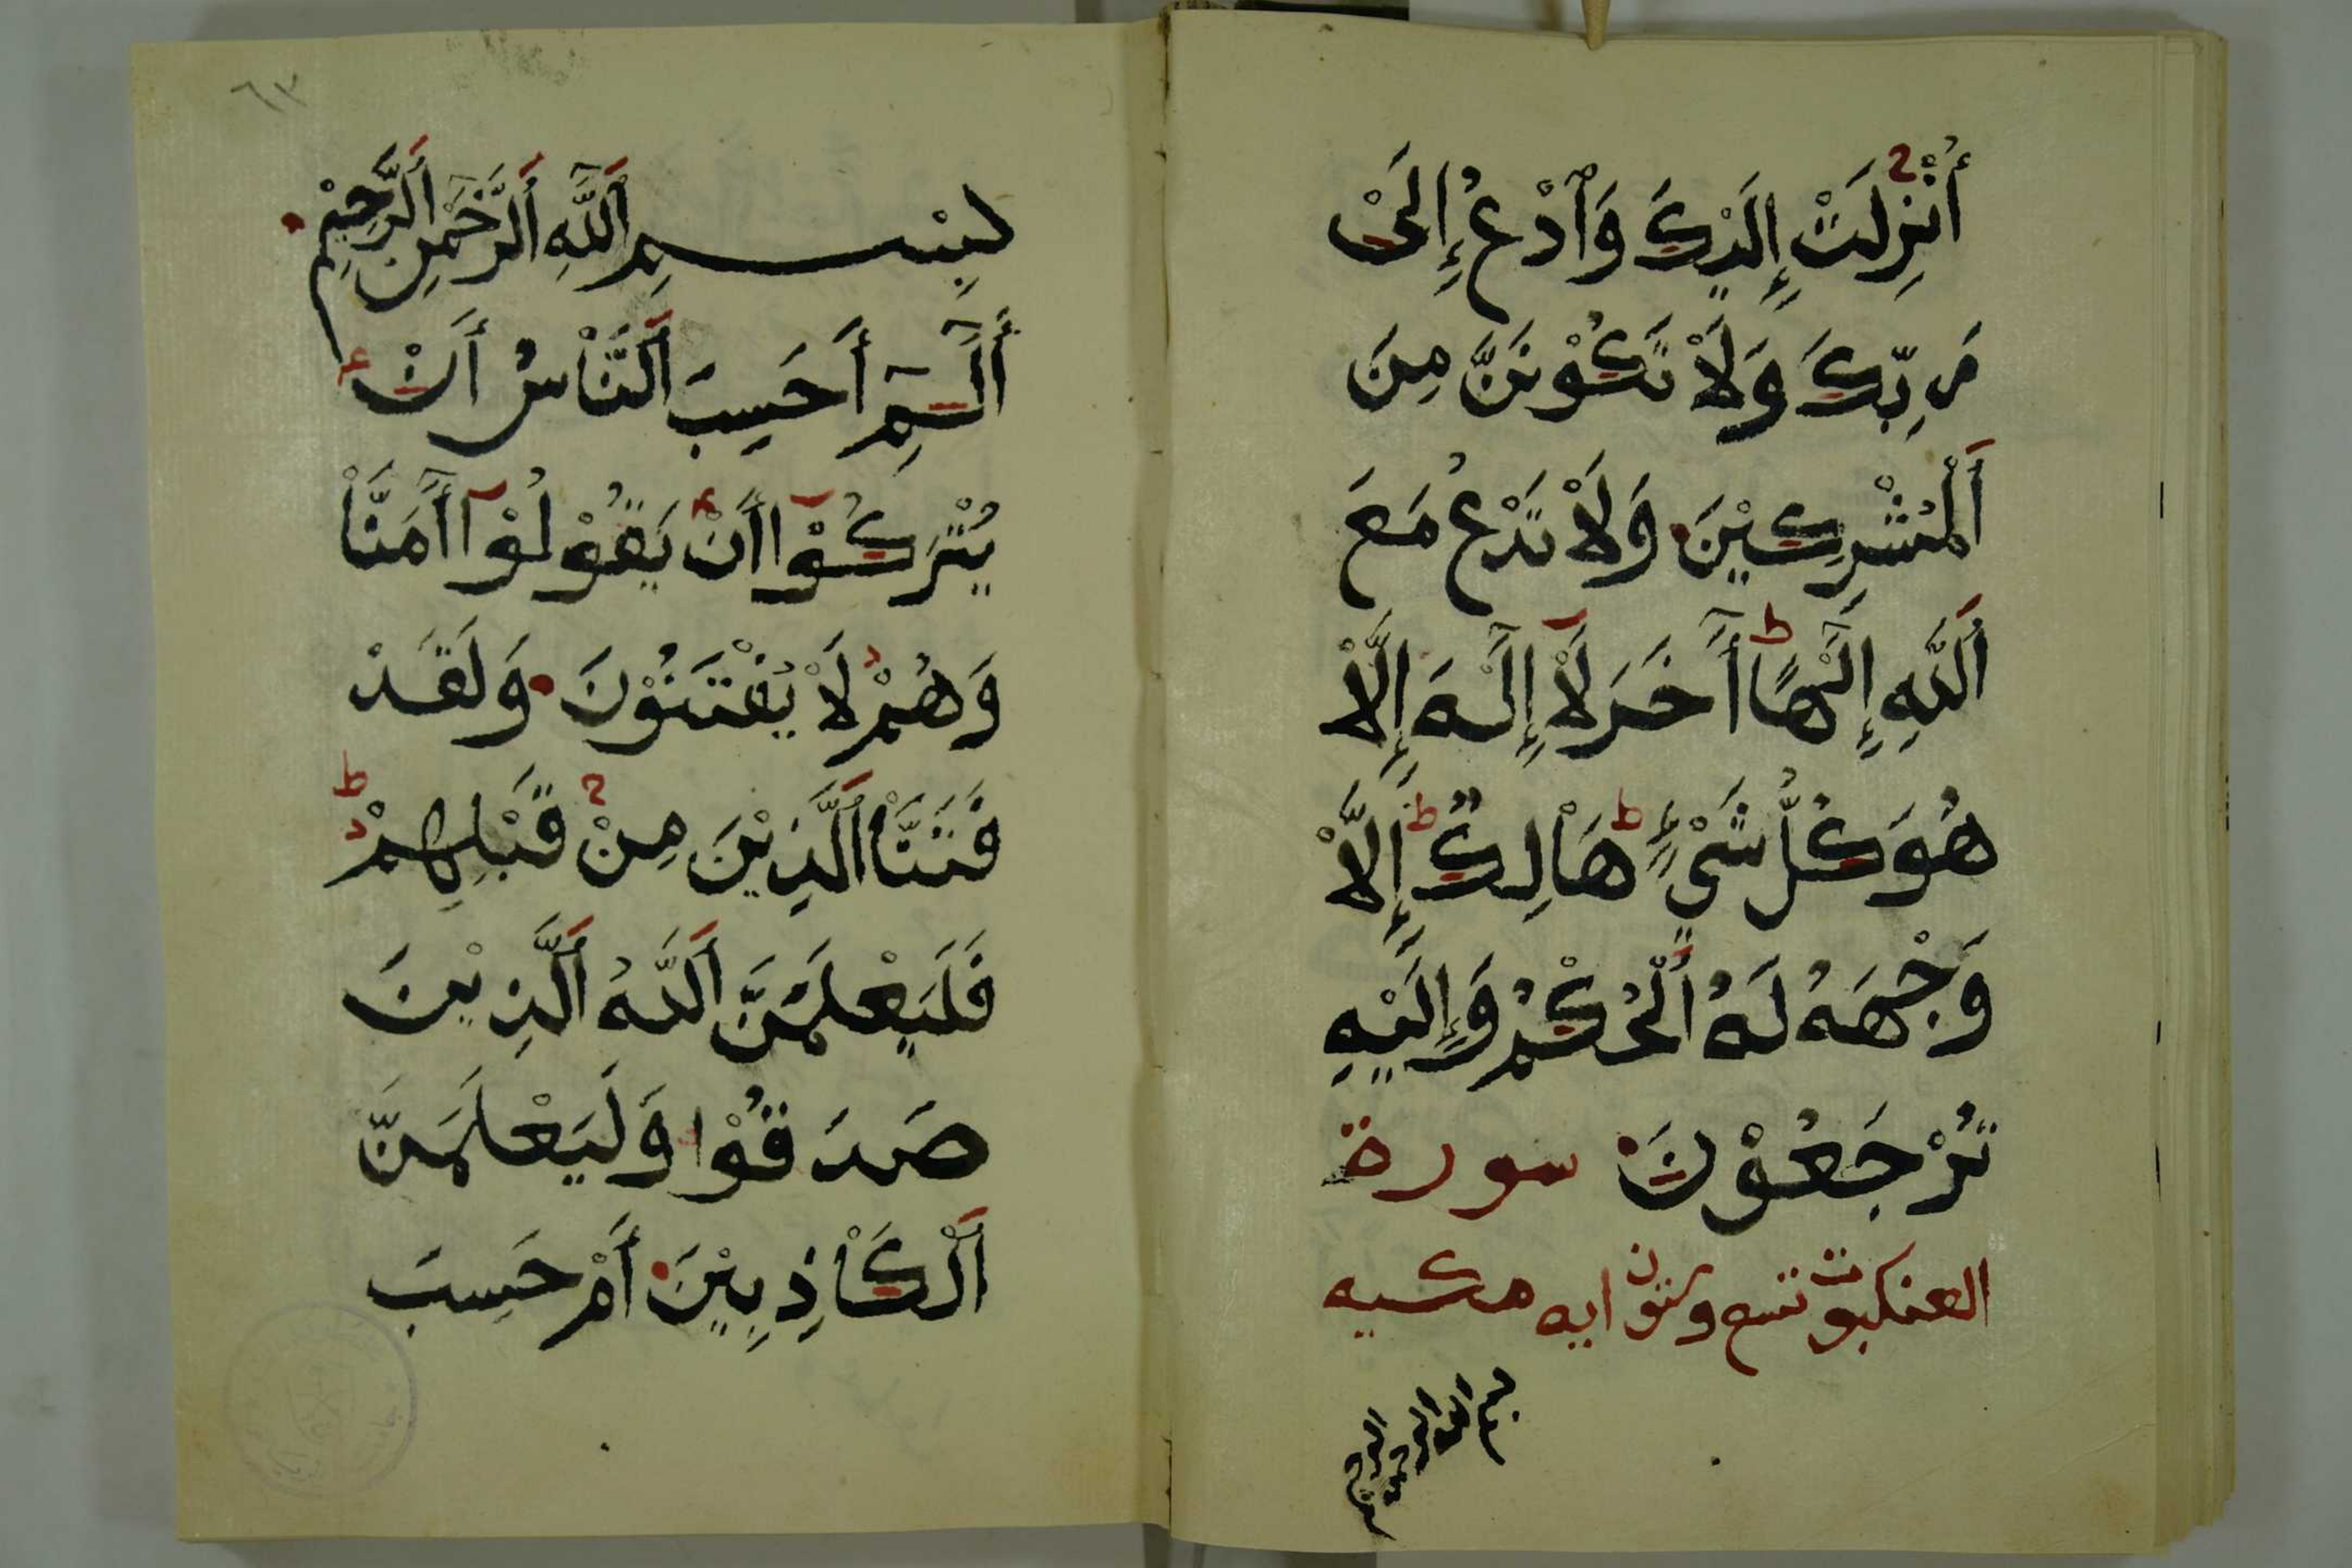 أُنْزِلَتْ إِلَيْكَ وَٱدْعُ إِلَىْ
رَبِّكَ وَلَاْ تَكُوْنَنَّ مِنَ
اَلْمُشْرِكِيْنَ وَلَاْ تَدْعُ مَعَ
اَللَّهِ إِلَٰهًا أٰخَرَ لَاْ إِلَٰهَ إِلَّاْ
هُوَ كُلُّ شَيْءٍ هَاْلِكٌ إِلَّاْ
وَجْهَهُ لَهُ اُلْحُكْمُ وَإِلَيْهِ
تُرْجَعُوْنَ سورة
العنكبوت تسع وستون ايه مكيه
بسم الله الرحمن الرحيم
٦٣
بِسْمِ اَللَّٰهِ اَلرَّحْمٰنِ اَلرَّحِيْمِ
أَلٓمٓ أَحَسِبَ اَلنَّاْسُ أَنْ
يُتْرَكُوْآ أَنْ يَقُوْلُوْآ أٰمَنَّاْ
وَهُمْ لَاْ يُفْتَنُوْنَ وَلَقَدْ
فَتَنَّاْ اَلَّذِيْنَ مِنْ قَبْلِهِمْ
فَلَيَعْلَمَنَّ اَللَّهُ اَلَّذِيْنَ
صَدَقُوْا وَلَيَعْلَمَنَّ
اَلْكَاْذِبِيْنَ أَمْ حَسِبَ